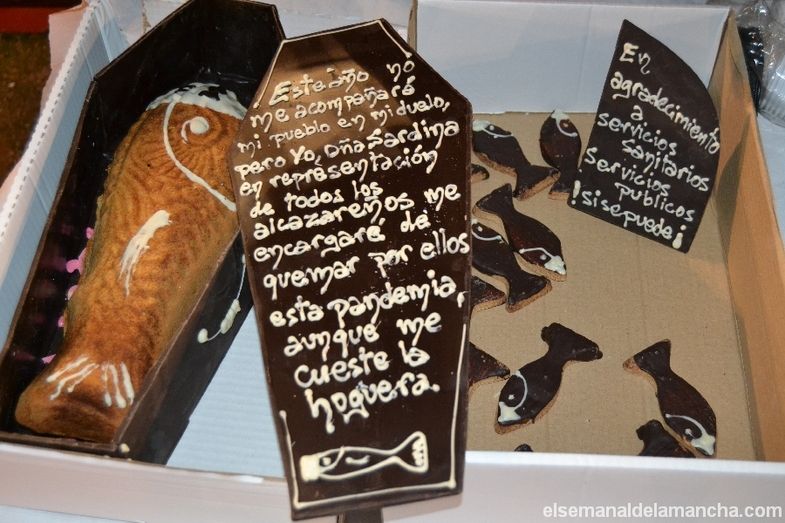 ¡Este año no
me acompañará
mi pueblo en mi duelo,
pero Yo, Dña Sardina
en representación
de todos los
alcazareños me
encargaré de
quemar por ellos
esta pandemia,
aunque me
cueste la
hoguera.
En
agradecimiento
a
servicios
sanitarios
Servicios
publicos
¡sisepuede¡
elsemanaldelamancha.com